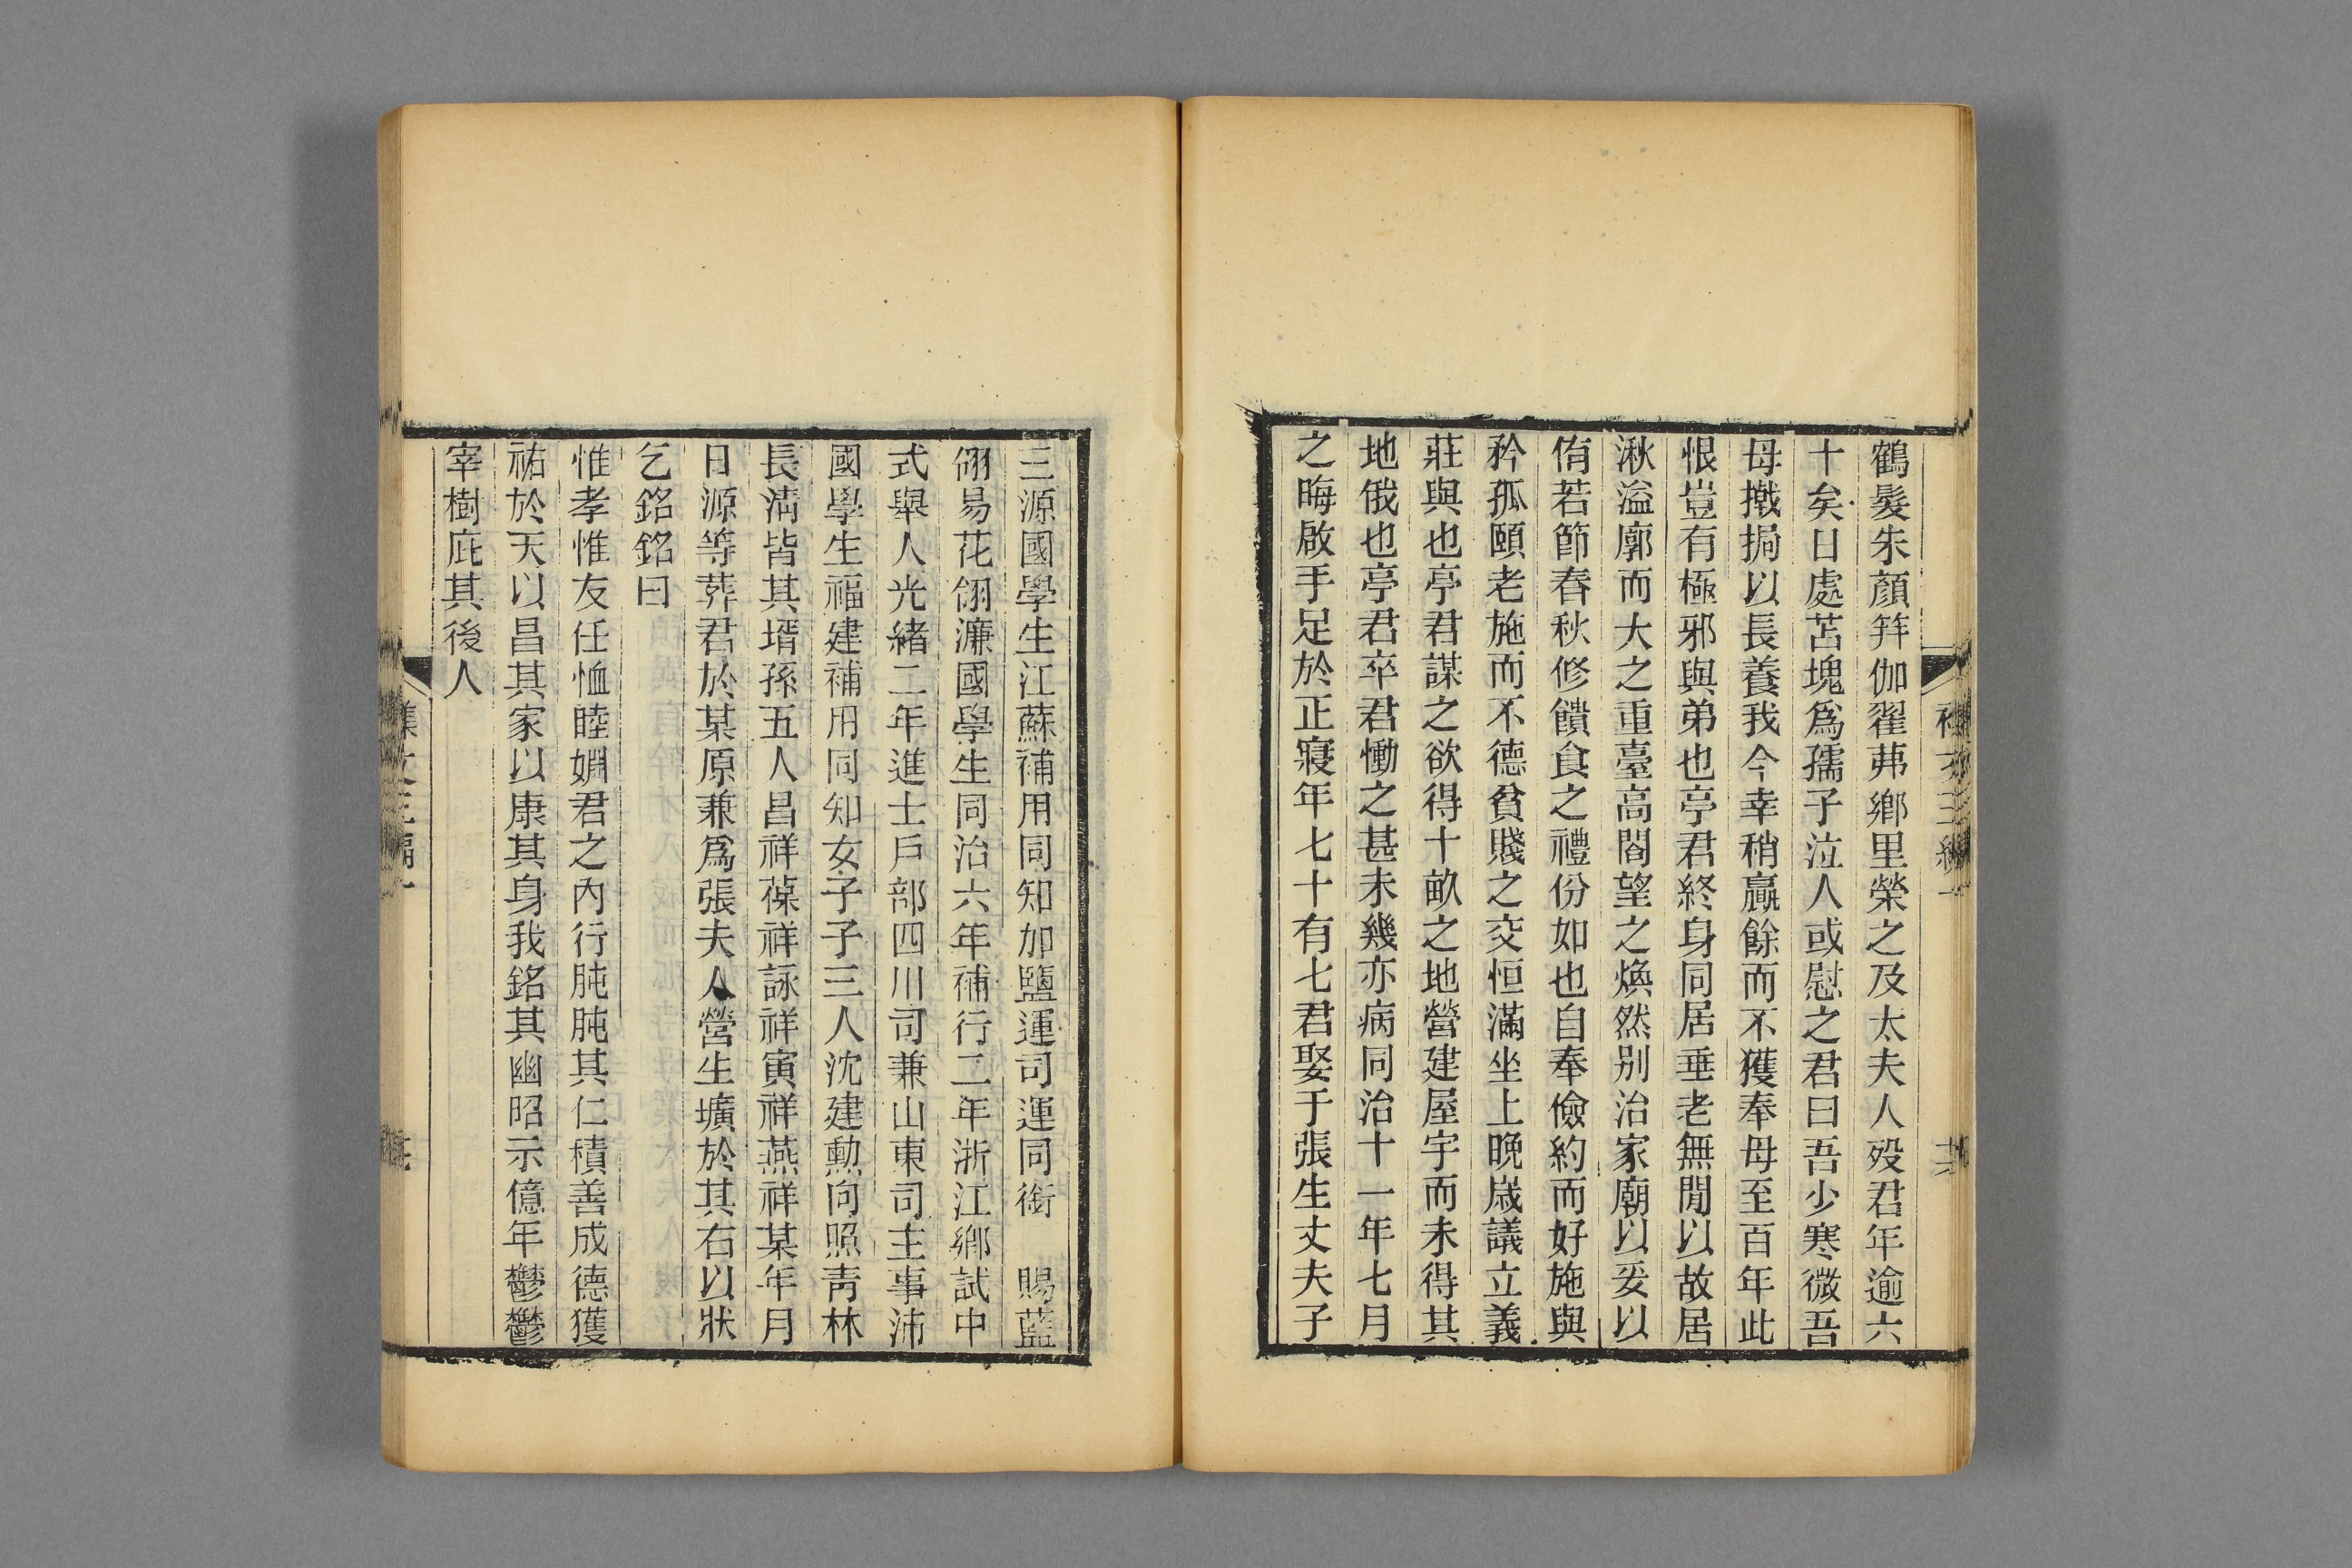 鶴髮朱顏笄伽翟茀鄉里榮之及太夫人歿君年逾六
十矣日處苫塊爲孺子泣人或慰之君曰吾少寒微吾
母撠挶以長養我今幸稍贏餘而不獲奉母至百年此
恨豈有極邪與弟也亭君終身同居垂老無閒以故居
湫溢廓而大之重臺高閣望之煥然别治家廟以妥以
侑若節春秋修饋食之禮份如也自奉儉約而好施與
矜孤頤老施而不德貧賤之交恒滿坐上晚歲議立義
莊與也亭君謀之欲得十畝之地營建屋宇而未得其
地俄也亭君卒君慟之甚未幾亦病同治十一年七月
之晦啟手足於正寢年七十有七君娶于張生丈夫子
三源國學生江蘇補用同知加鹽運司運同銜 賜藍
翎易花翎濂國學生同治六年補行二年浙江鄉試中
式舉人光緒二年進士戶部四川司兼山東司主事沛
國學生福建補用同知女子子三人沈建勳向照青林
長淸皆其壻孫五人昌祥葆祥詠祥寅祥燕祥某年月
日源等葬君於某原兼爲張夫人營生壙於其右以狀
乞銘銘曰
惟孝惟友任恤睦婣君之內行肫肫其仁積善成德獲
祐於天以昌其家以康其身我銘其幽昭示億年鬱鬱
宰樹庇其後人